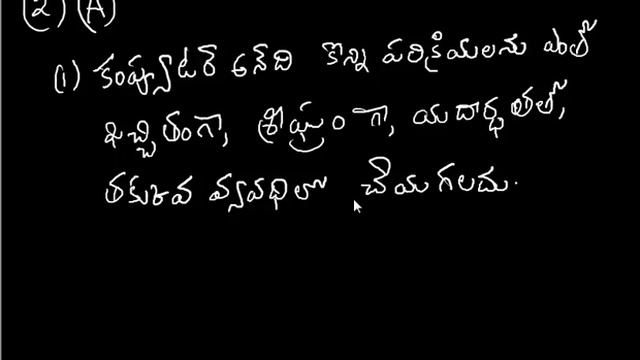 (2) (A)
(1) కంప్యూటర్ అనేది కొన్ని పరిక్రియలను ఎంతో
ఖచ్చితంగా, శీఘ్రంగా, యదార్థతతో,
తకుకవ వ్యవధిలో చేయగలదు.